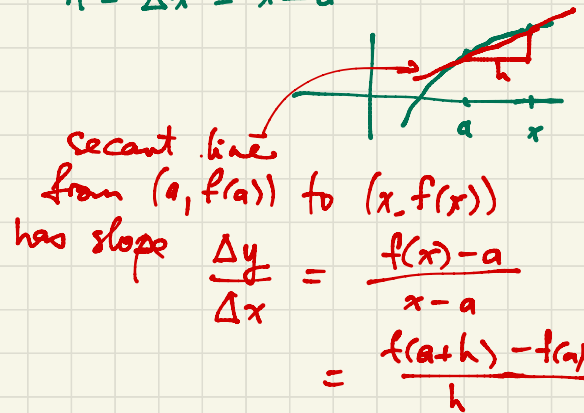 h = Δx = x - a
h
a x
secant line
from (a, f(a)) to (x, f(x))
has slope
Δy/Δx = (f(x) - a)/(x - a)
= (f(a+h) - f(a)/h